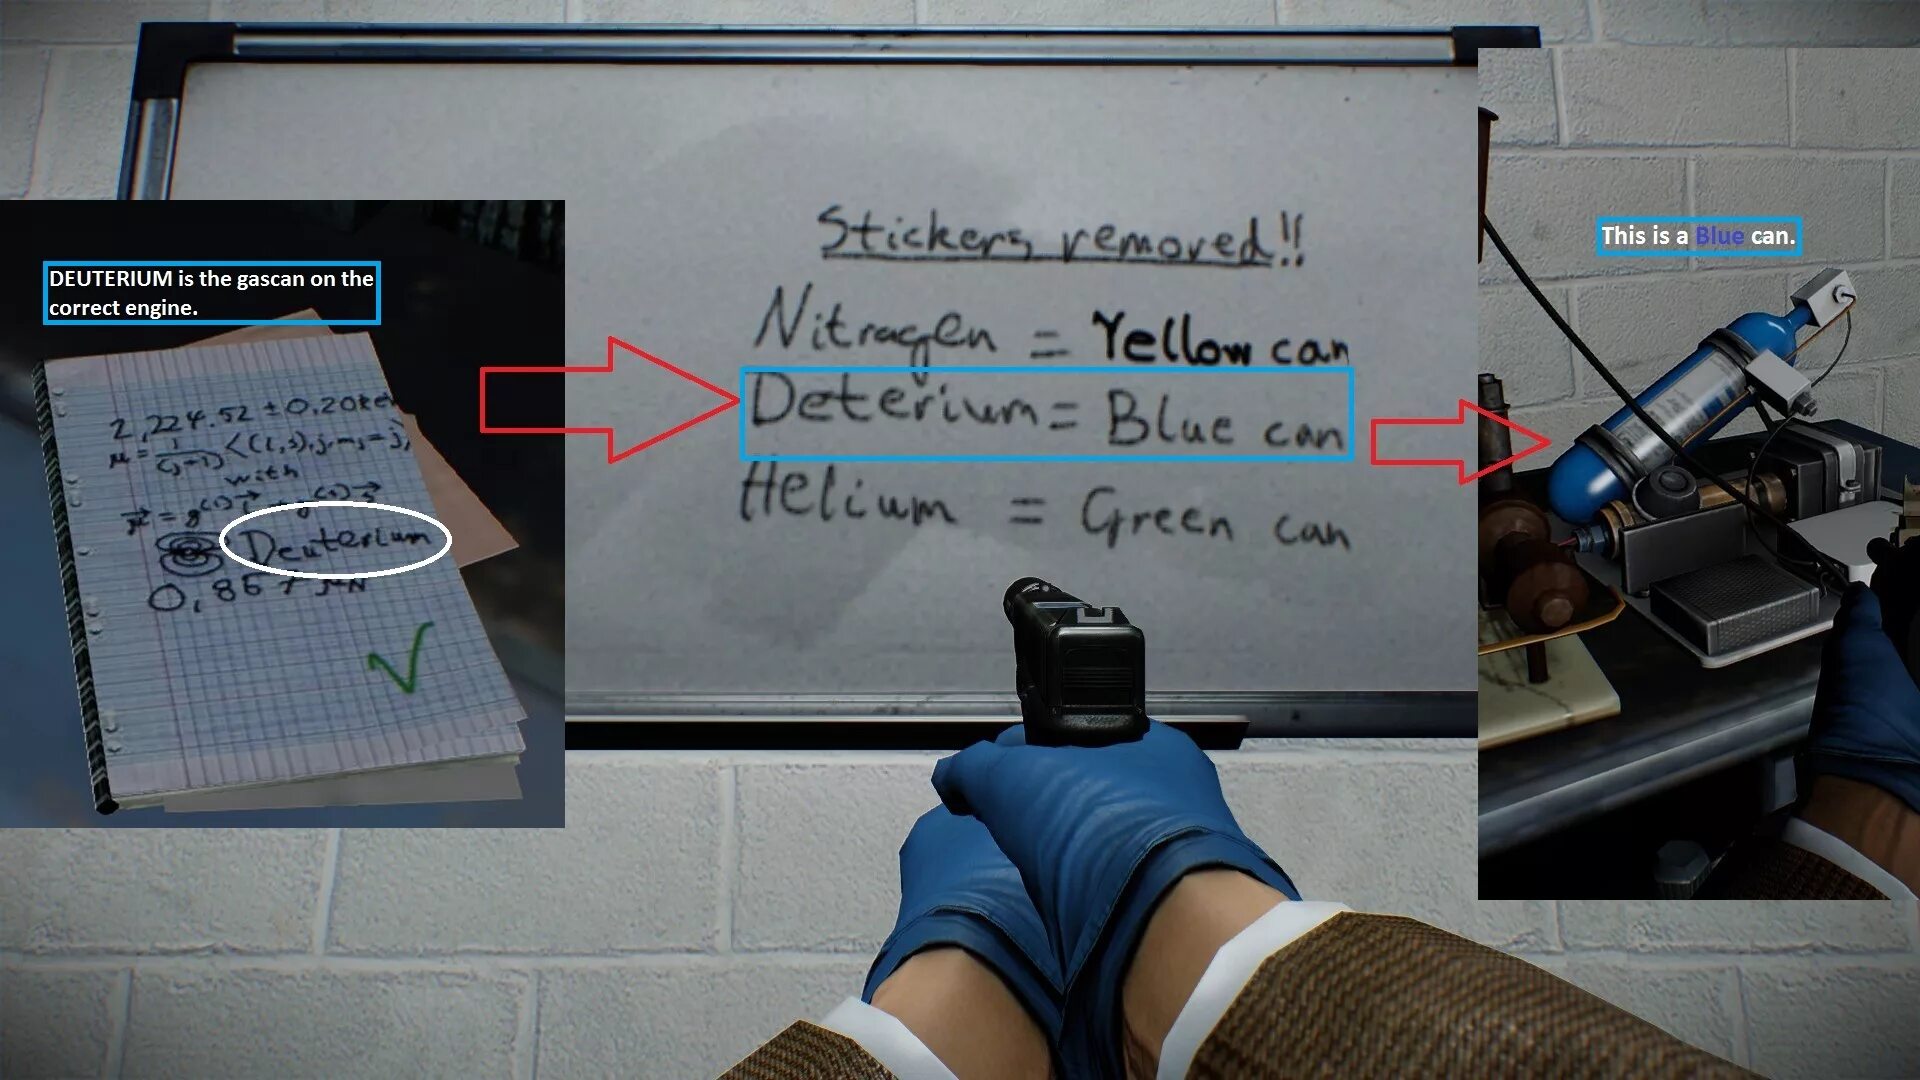 DEUTERIUM is the gascan on the
correct engine.
2,224.52 ± 0.20 keV
with
Deuterium
0,857 μN
Stickers removed!!
Nitragen = Yellow can
Deterium = Blue can
Helium = Green can
This is a Blue can.